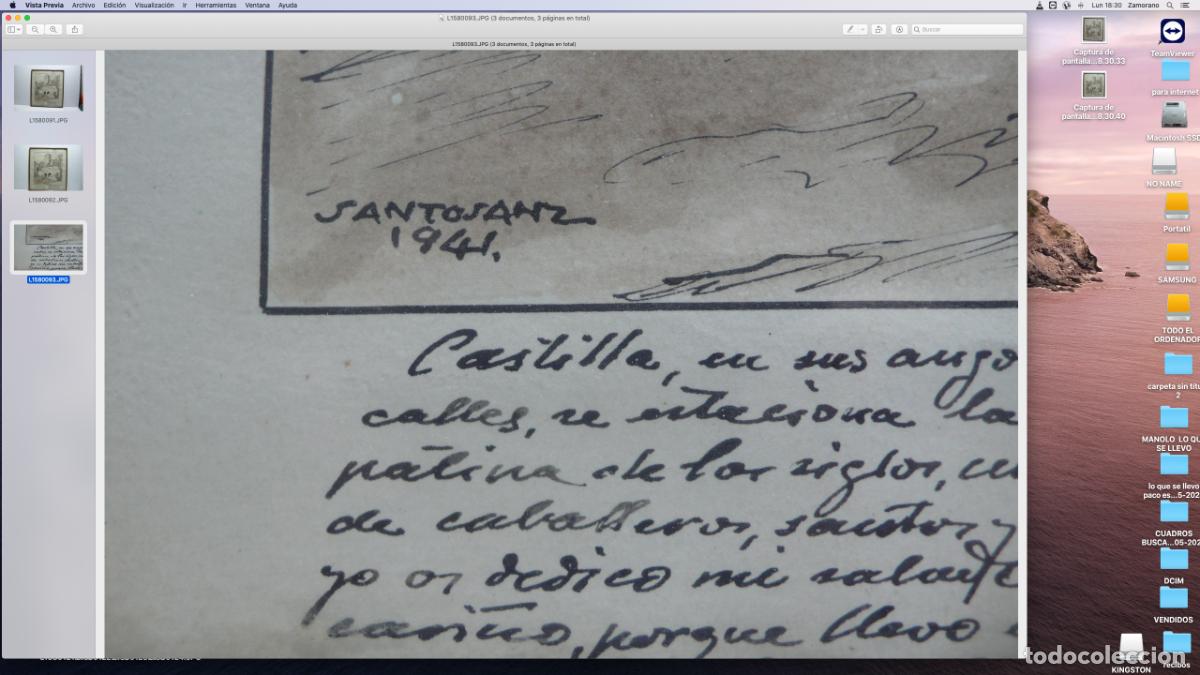 Vista Previa Archivo Edición Visualización Ir Herramientas Ventana Ayuda
Lun 18:30 Zamorano
L1580093.JPG (3 documentos, 3 páginas en total)
Buscar
L1580093.JPG (3 documentos, 3 páginas en total)
L1580091.JPG
L1580092.JPG
L1580093.JPG
SANTOSANZ
1941.
Castilla, en sus ango
calles, se estaciona la
pátina de los siglos, cu
de caballeros, santos y
yo os dedico mi
cariño, porque llevo
Captura de
pantalla...8.30.33
Captura de
pantalla...8.30.40
TeamViewer
para internet
Macintosh SSD
NO NAME
Portatil
SAMSUNG
TODO EL
ORDENADOR
carpeta sin titu
2
MANOLO LO QU
SE LLEVO
lo que se llevo
paco es...5-202
CUADROS
BUSCA...05-202
DCIM
VENDIDOS
KINGSTON
recibos
todocoleccion